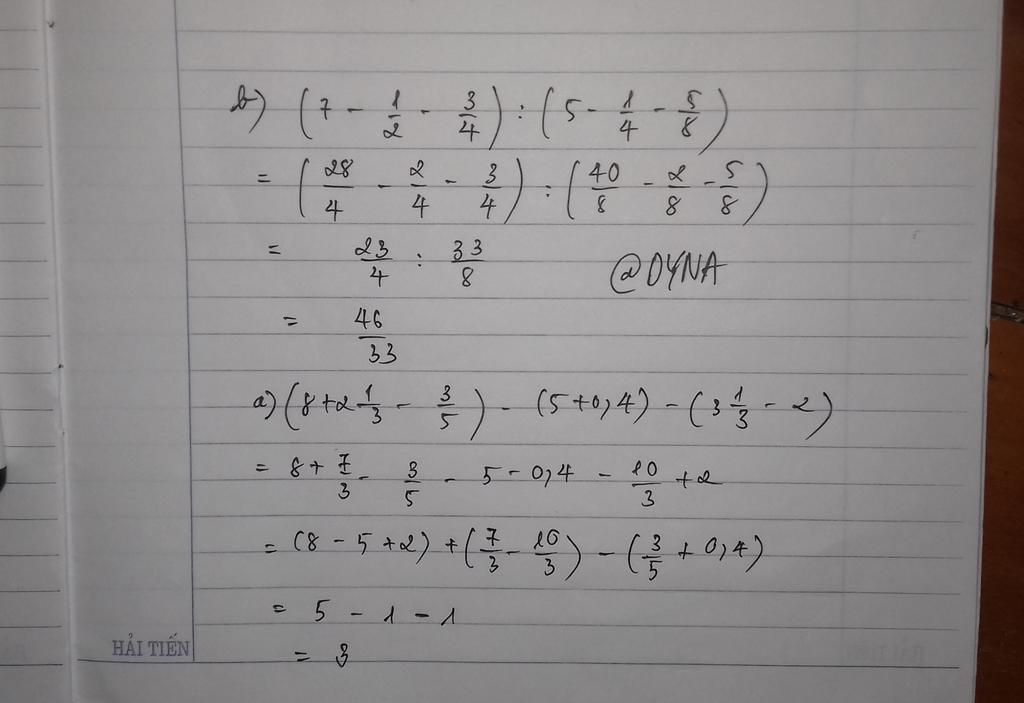 b) (7 - 1/2 - 3/4) : (5 - 1/4 - 5/8)
= (28/4 - 2/4 - 3/4) : (40/8 - 2/8 - 5/8)
= 23/4 : 33/8
@DYNA
= 46/33
a) (8 + 2 1/3 - 3/5) - (5 + 0,4) - (3 1/3 - 2)
= 8 + 7/3 - 3/5 - 5 - 0,4 - 10/3 + 2
= (8 - 5 + 2) + (7/3 - 10/3) - (3/5 + 0,4)
= 5 - 1 - 1
= 3
HẢI TIẾN